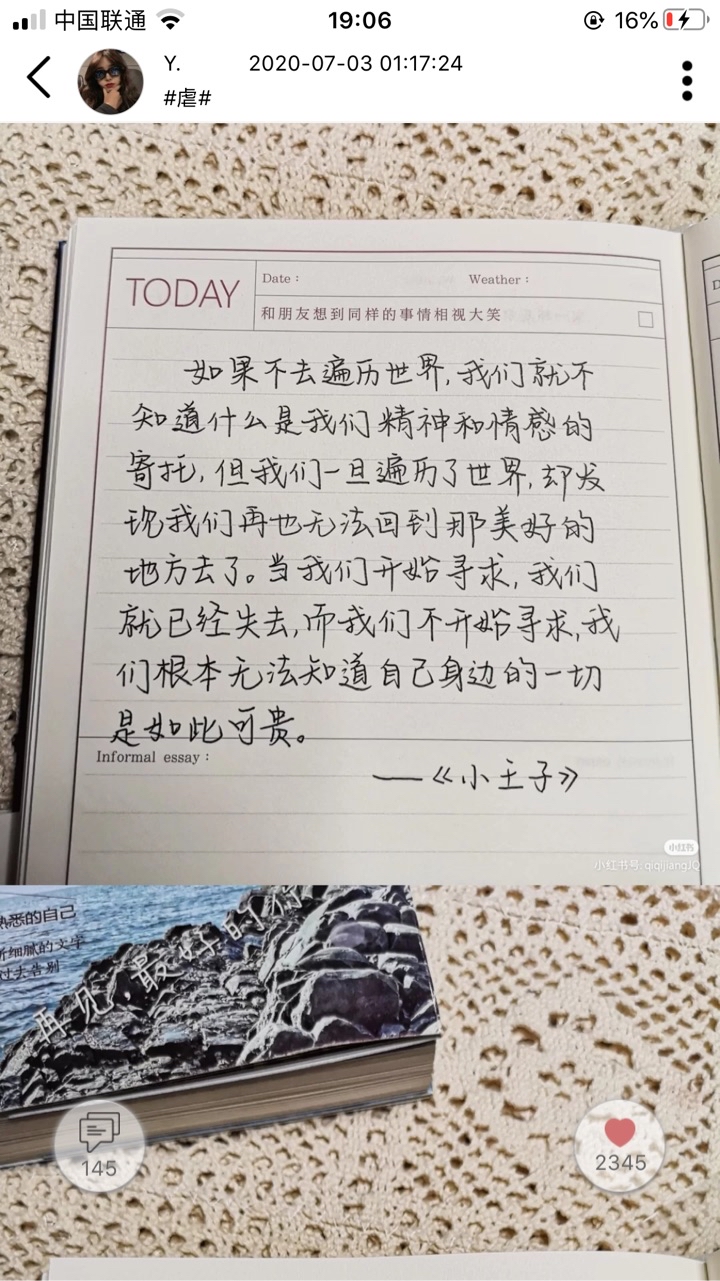 中国联通
19:06
16%
Y.
2020-07-03 01:17:24
#虐#
TODAY
Date：
Weather：
和朋友想到同样的事情相视大笑
如果不去遍历世界,我们就不
知道什么是我们精神和情感的
寄托,但我们一旦遍历了世界,却发
现我们再也无法回到那美好的
地方去了。当我们开始寻求,我们
就已经失去,而我们不开始寻求,我
们根本无法知道自己身边的一切
是如此可贵。
Informal essay：
——《小王子》
小红书
小红书号: qiqijiangJQ
熟悉的自己
细腻的文字
过去告别
再见，最好的
145
2345